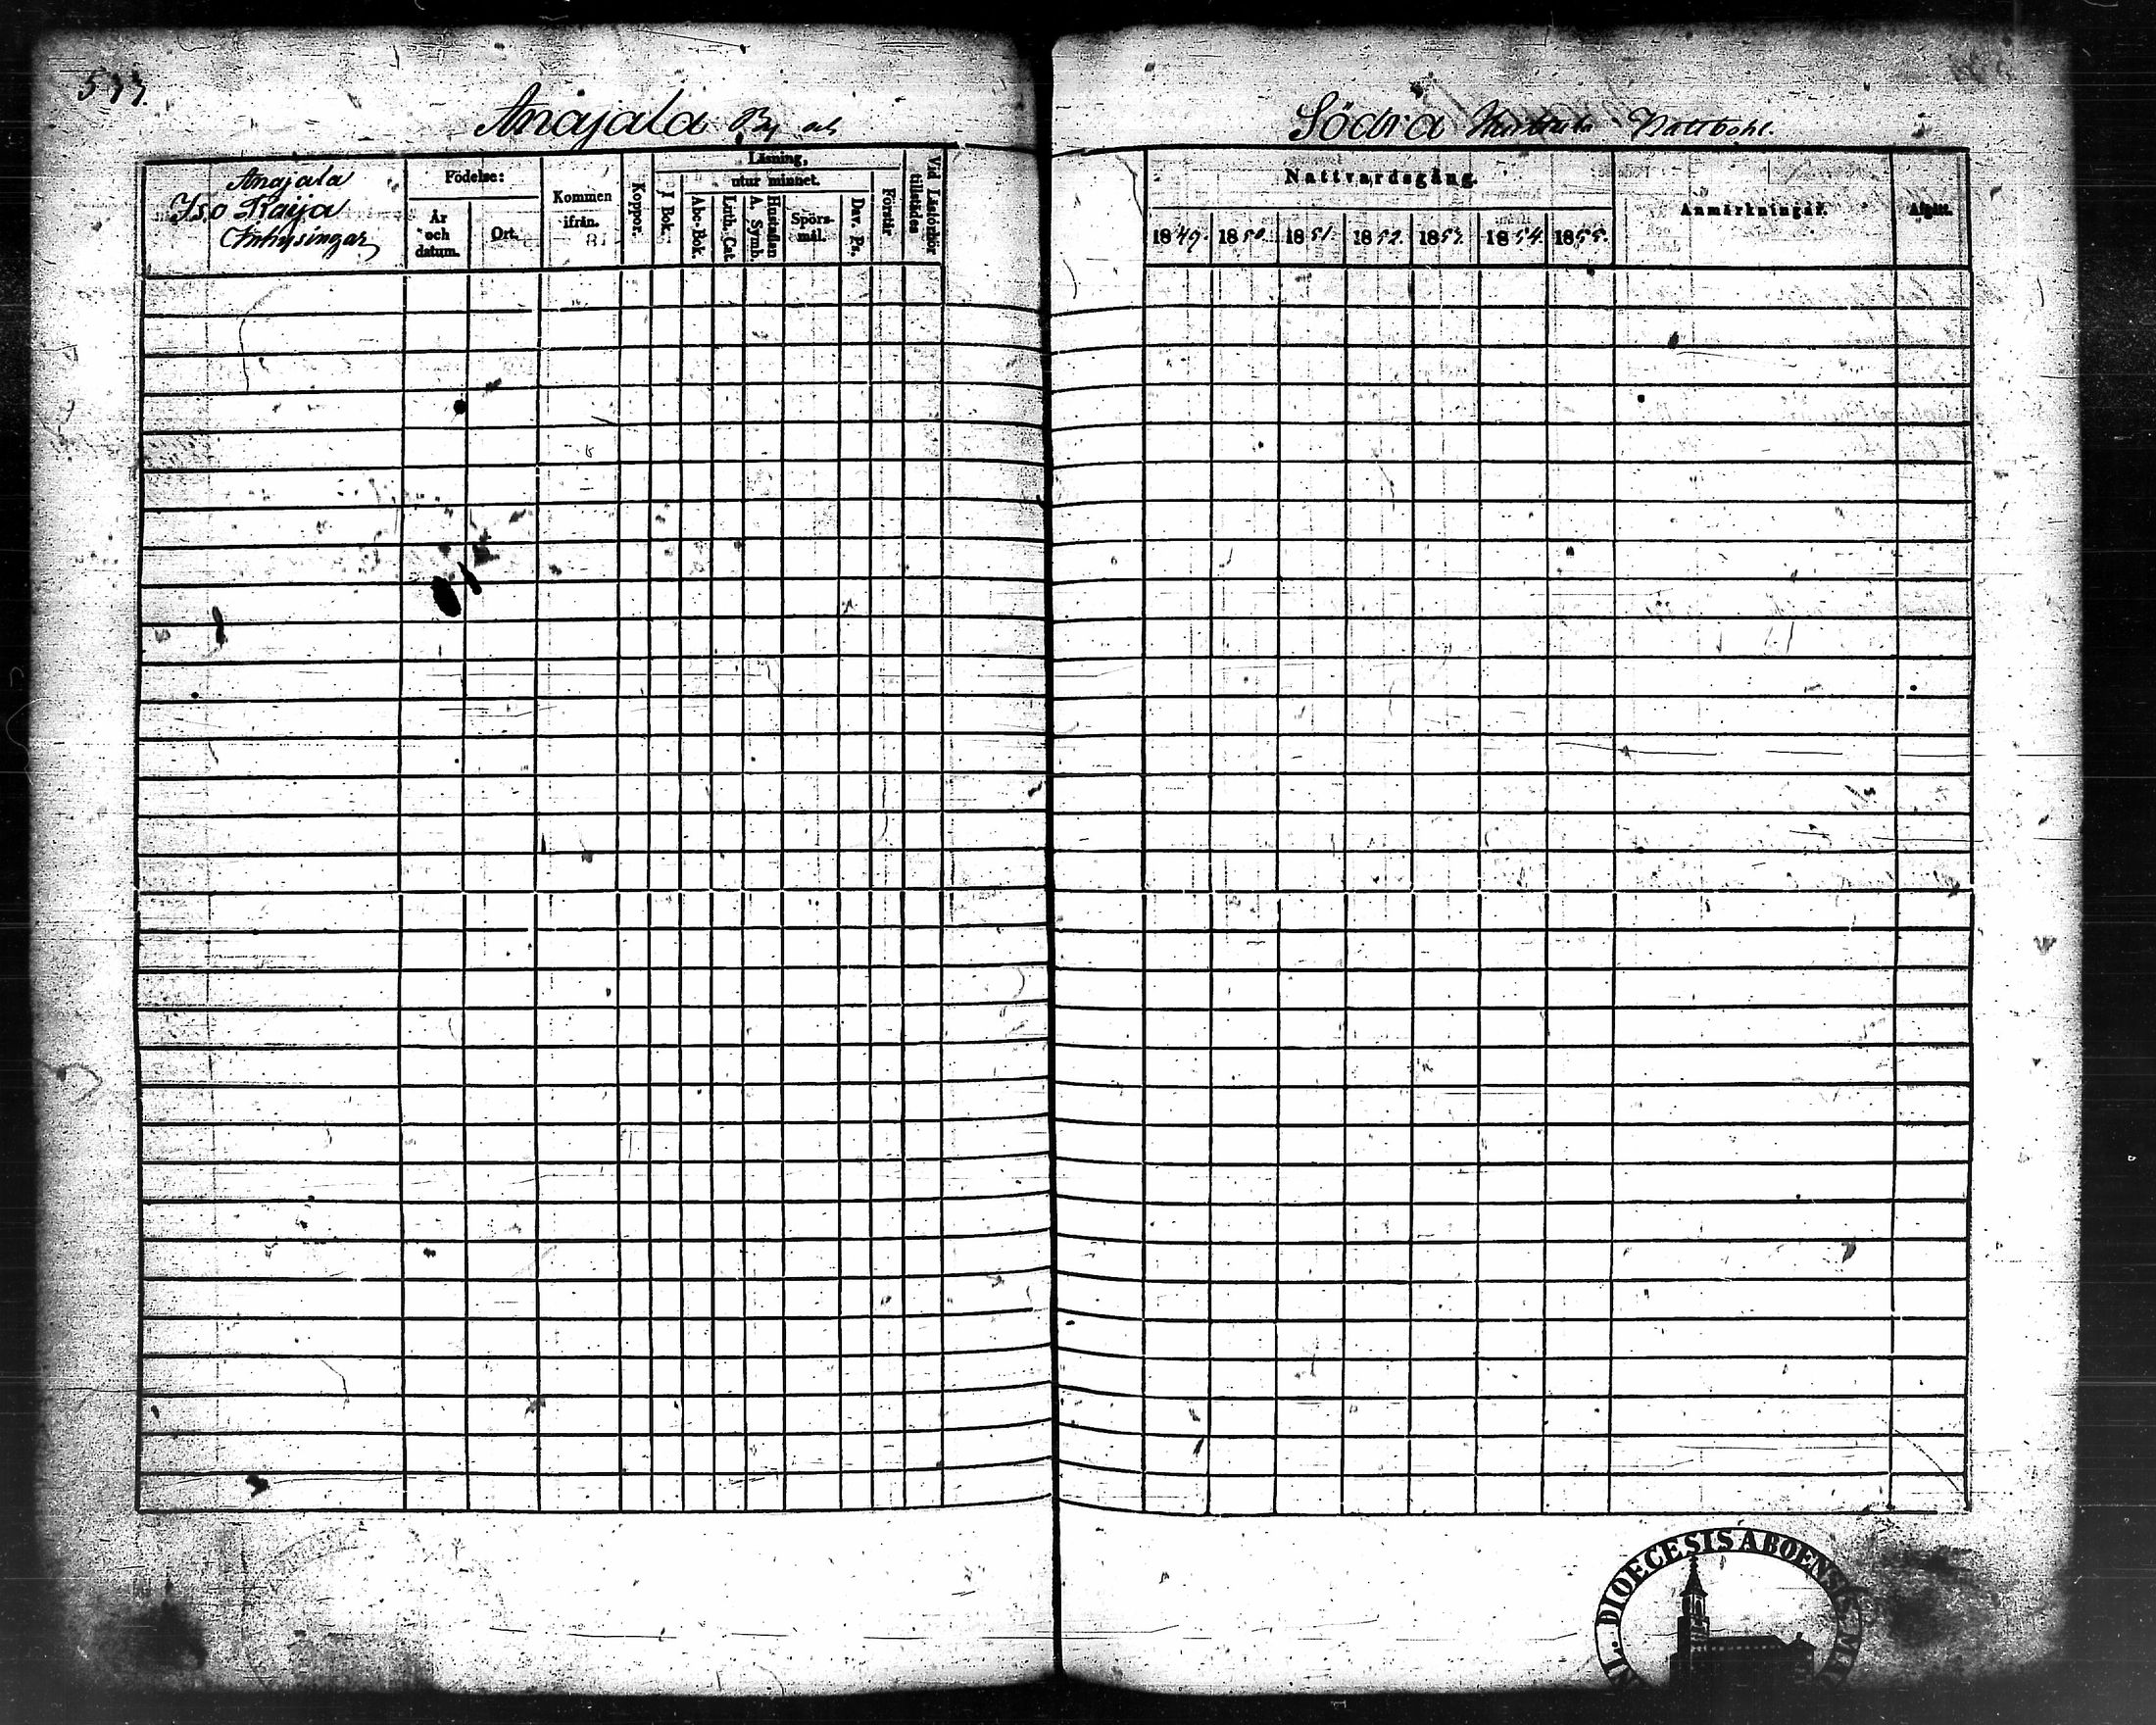 533.
Anajala By och
Anajala
Iso Raija
Inhysingar
Födelse:
År och datum.
Ort.
Kommen ifrån.
Koppor.
Läsning,
utur minnet.
I Bok.
Abc-Bok.
Luth. Cat.
Hustaflan A. Symb.
Spörsmål.
Dav. Ps.
Förstår
Vid Läsförhör tillstädes
Södra Nattbohl.
Nattvardsgång.
1849. 1850. 1851. 1852. 1853. 1854. 1855.
Anmärkningar.
Afgått.
DIOECESIS ABOENSIS